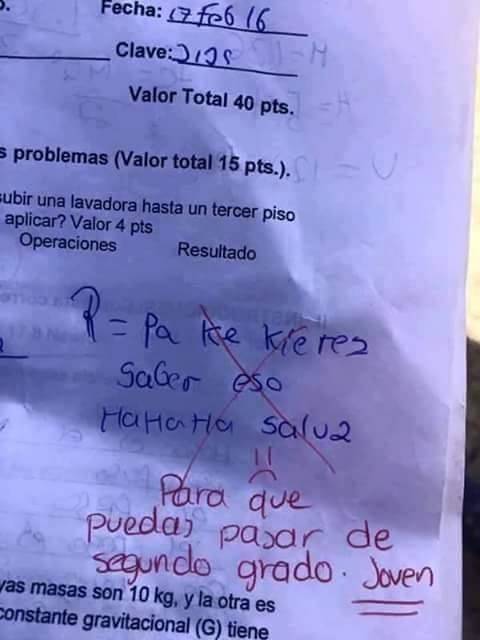 Fecha: 17 Feb 16
Clave:
Valor Total 40 pts.
s problemas (Valor total 15 pts.).
ubir una lavadora hasta un tercer piso
aplicar? Valor 4 pts
Operaciones Resultado
R = Pa ke kieres
saber eso
HaHaHa salu2
Para que
puedas pasar de
segundo grado. Joven
yas masas son 10 kg, y la otra es
constante gravitacional (G) tiene